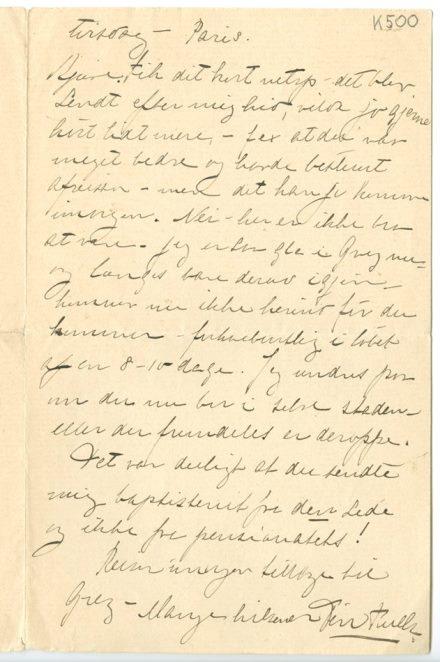 K500
tirsdag – Paris.
Kjære, fik dit kort netop – det blev
sendt efter mig hid, vilde jo gjerne
hørt lidt mere, – f.ex at du var
meget bedre og havde bestemt
afreisen – men det kan jo komme
imorgen. Nei – her er ikke bra
at være. Jeg er saa gla i Grez nu –
og længes bare derav igjen –
kommer nu ikke herind før du
kommer – forhaabentlig i løbet
af en 8–10 dage. Jeg undres paa
om du nu bor i selve staden –
eller du fremdeles er deroppe.
Det var deiligt at du sendte
mig
og ikke fra pensionatets!
Reiser imorgen tilbage til
Grez – Mange hilsener Din